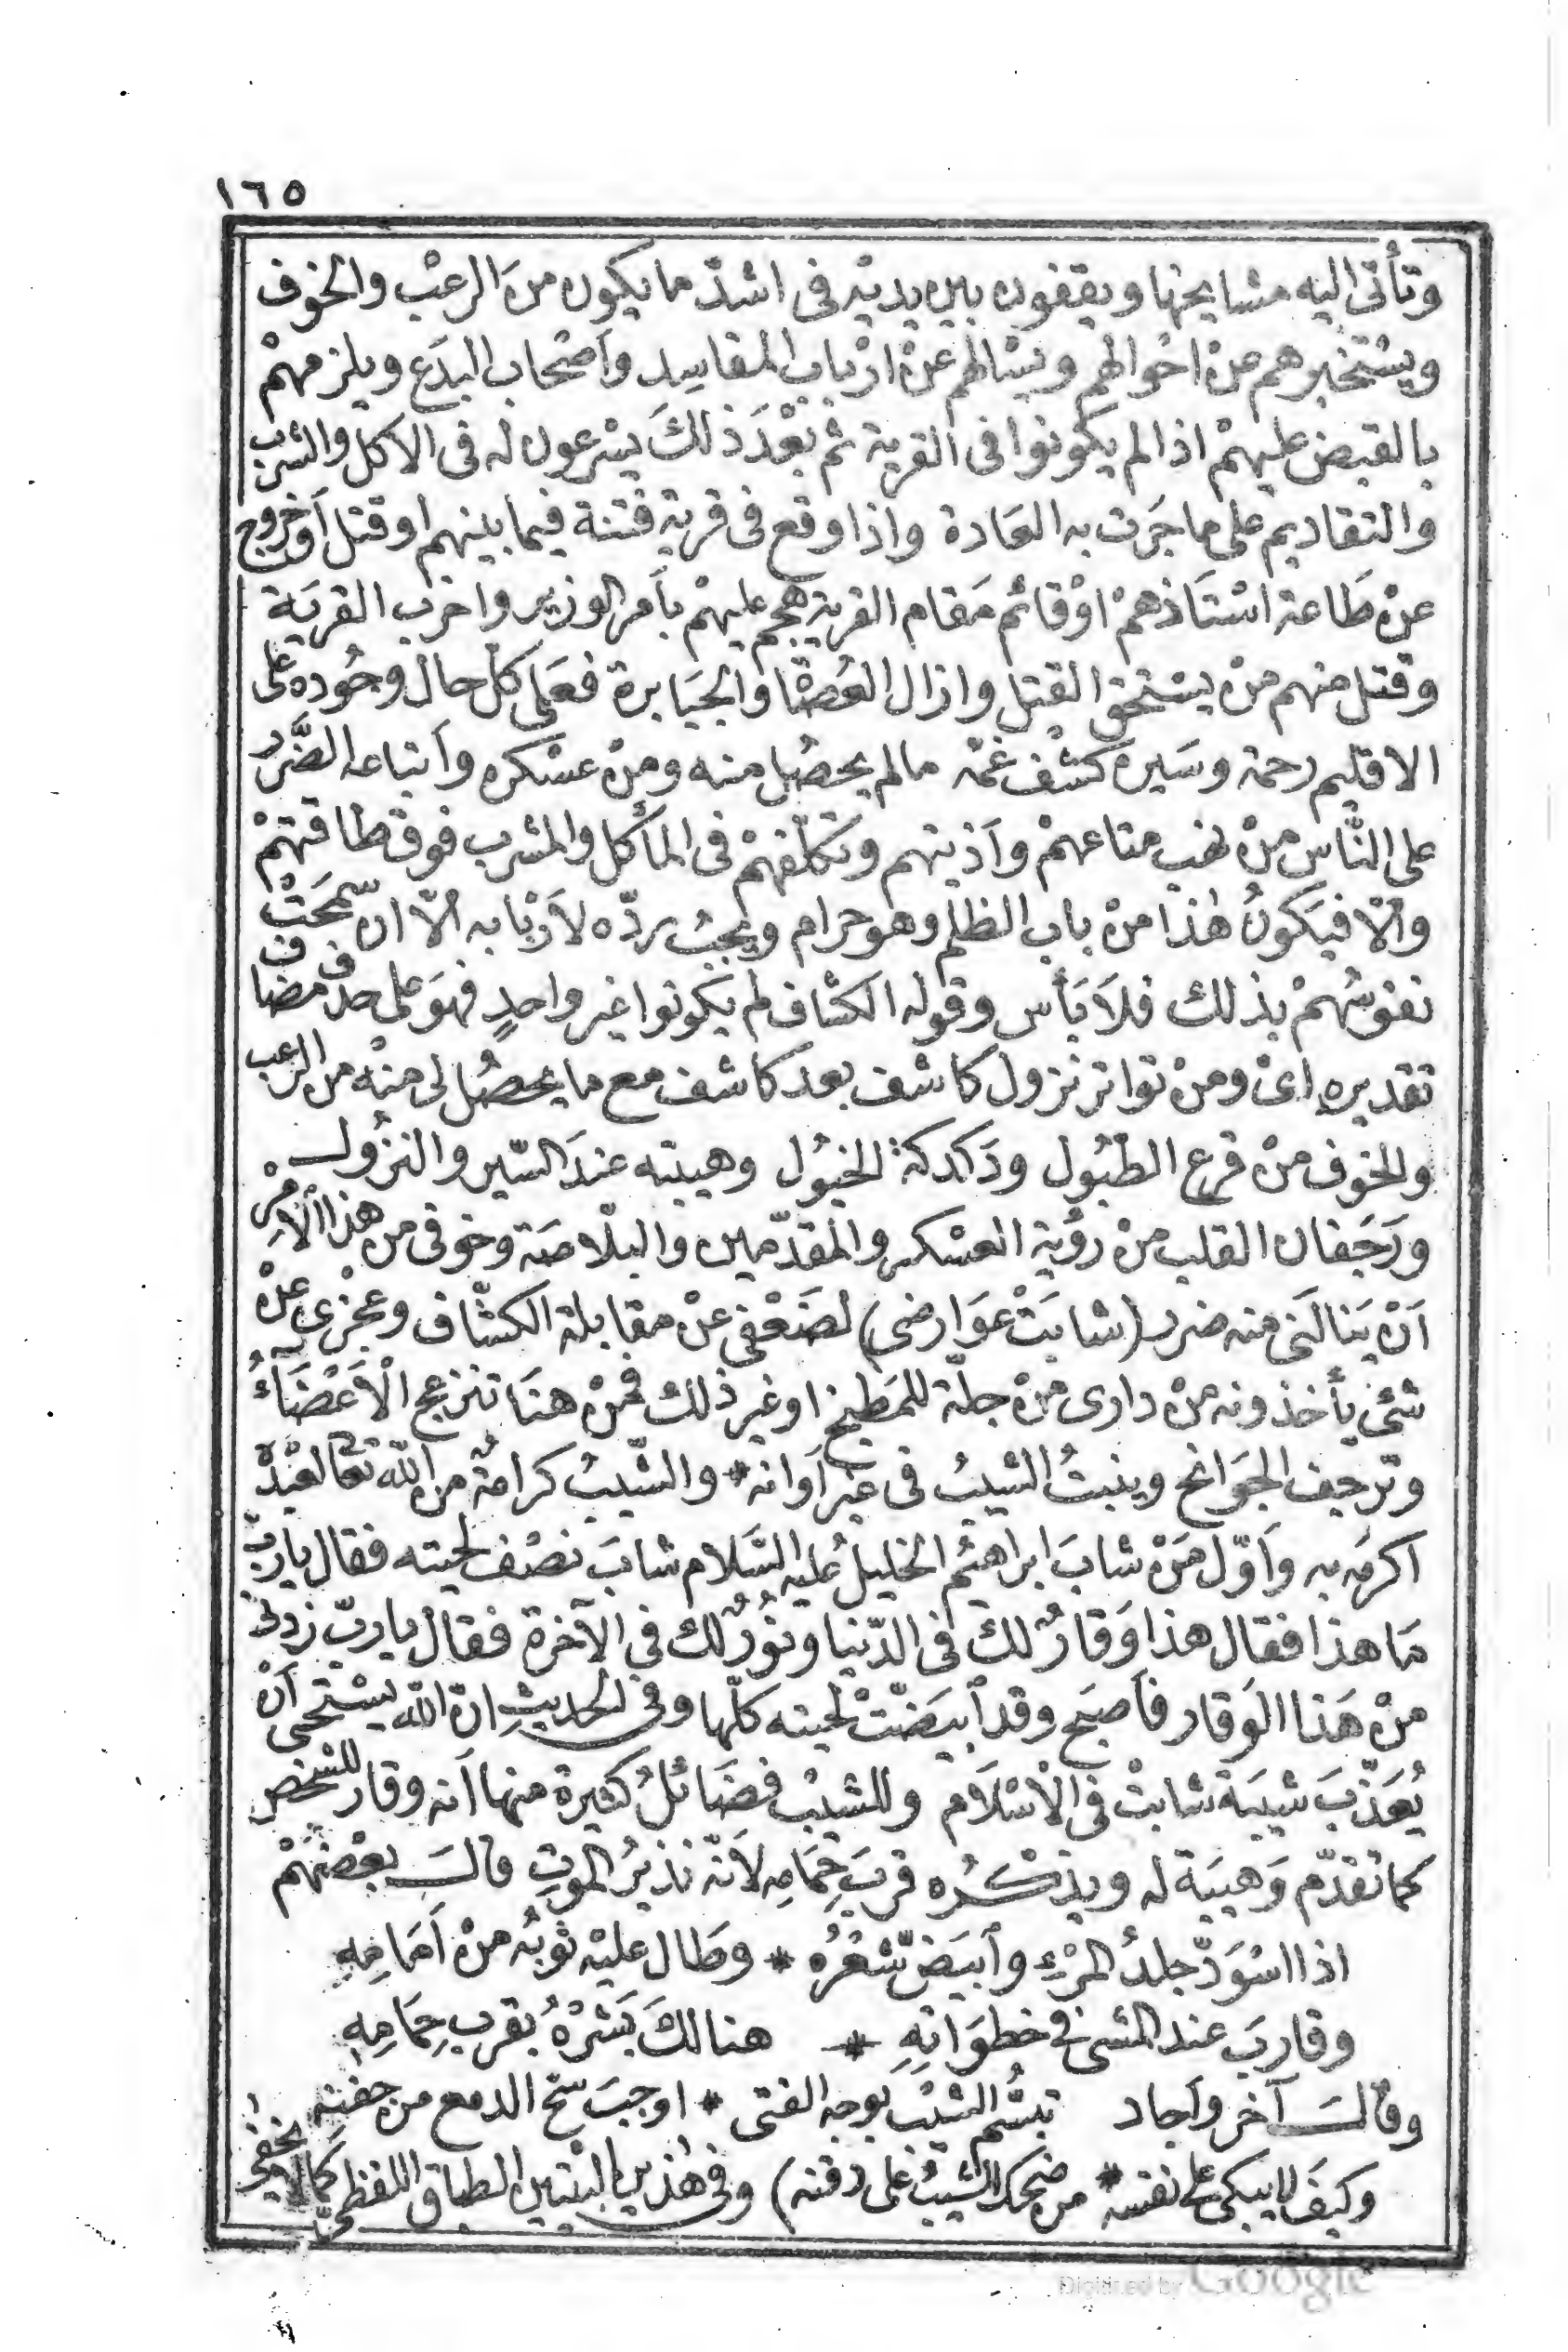 ١٦٥
وتأتى اليه مشايخها ويقفون بين يديه فى اشدّ ما يكون من الرعْب والخوف
ويسْتخبرهم عنْ احْوالهم ويسْالهم عنْ ارْباب المفاسِد وأصْحاب البدَع ويلزمهمْ
بالقبض عليهمْ اذا لم يكونوا فى القرية ثم بعْدَ ذلكَ يسْرعون له فى الاكل والشرب
والتقاديم على ما جَرَت به العَادة واذا وقع فى قرية فتنة فيما بينهم او قتل أو خروج
عنْ طَاعة اسْتَاذهمْ اوْ قائم مَقام القرية هجم عليهمْ بأمر الوزير واخرب القريَة
وقتل منهم منْ يسْتحق القتل وازال العُصَاة والجبَابرة فعَلى كل حال وجُوده على
الاقليم رحمة وسَيره كشْف غمّة مالم يحصُل منه ومنْ عسْكره وأتباعه الضَّرر
على النَّاس منْ نهب متاعهمْ وأذيتهم وتكلّفهمْ فى المأكل والمشرب فوق طاقتهمْ
والّا فيَكونُ هٰذا منْ باب الظلم وهو حرام ويجبُ ردّه لأرْبابه الّا ان سمَحَتْ
نفوسُهمْ بذلك فلاَ بَأس وقوله الكشاف لم يكونوا غير واحدٍ فهوَ على حذف مضاف
تقديره اىْ ومنْ تواتر نزول كاشف بعد كاشف مع ما يحصُل لى منه من الرعب
والخوف منْ قرع الطبُول ودَكدكة الخيُول وهيبته عندَ السّير والنزُول
ورَجَفان القلب منْ رؤية العسْكر والمقدّمين والبلّاصَة وخوفى من هذا الأمْر
أنْ يَنالَنى منه ضرر (شابَتْ عوَارضى) لضَعْفى عنْ مقابلة الكشّاف وعجْزى عنْ
شئ يأخذونه منْ دارى منْ جلّة للمَطبخ او غير ذلك فمنْ هنَا تنزعج الْأعْضَاءُ
وتَرجيف الجوَانح وينبتُ الشيبُ فى غير أوانه * والشّيبُ كرامةٌ من الله تعالى لعبْدٍ
اكرمَه به وأوّل مَنْ شابَ ابراهيمُ الخليلُ عليه السَّلام شابَ نصْف لحيته فقال يا ربّ
مَا هذا فقال هذا وَقارٌ لكَ فى الدّنيا ونُورٌ لك فى الآخرة فقال يا ربّ زدنى
منْ هَذا الوَقار فأصبَح وقد أبيَضّتْ لحيته كلّها وفى الحديثِ انّ الله يسْتحى أنْ
يُعَذّبَ شيبَة شابتْ فى الْاسْلاَم وللشيْب فضَائلُ كثيرة منها أنه وقار للشخص
كما تقدّم وَهيبَة له ويذكّره قربَ حِمَامِه لأنّه نذيرُ الموت قالَ بعْضهُمْ
اذا اسْوَدّ جلدُ المرْءِ وأبيَضّ شعْرُه * وطَال عليْه ثوبُه منْ أمَامِهِ
وقاربَ عند المشى فى خطوَاتِهِ * هنالكَ بَشّرْهُ بقربِ حِمَامِهِ
وقالَ آخر وأجاد تبسُّم الشيْب بوجه الفتى * اوجبَ سحّ الدمع من جفنهِ
وكيفَ لا يبكى على نفسه * من ضحك الشيبُ على ذقنه) وفى هٰذين البيْتين الطباق اللفظى كما لا يخفى